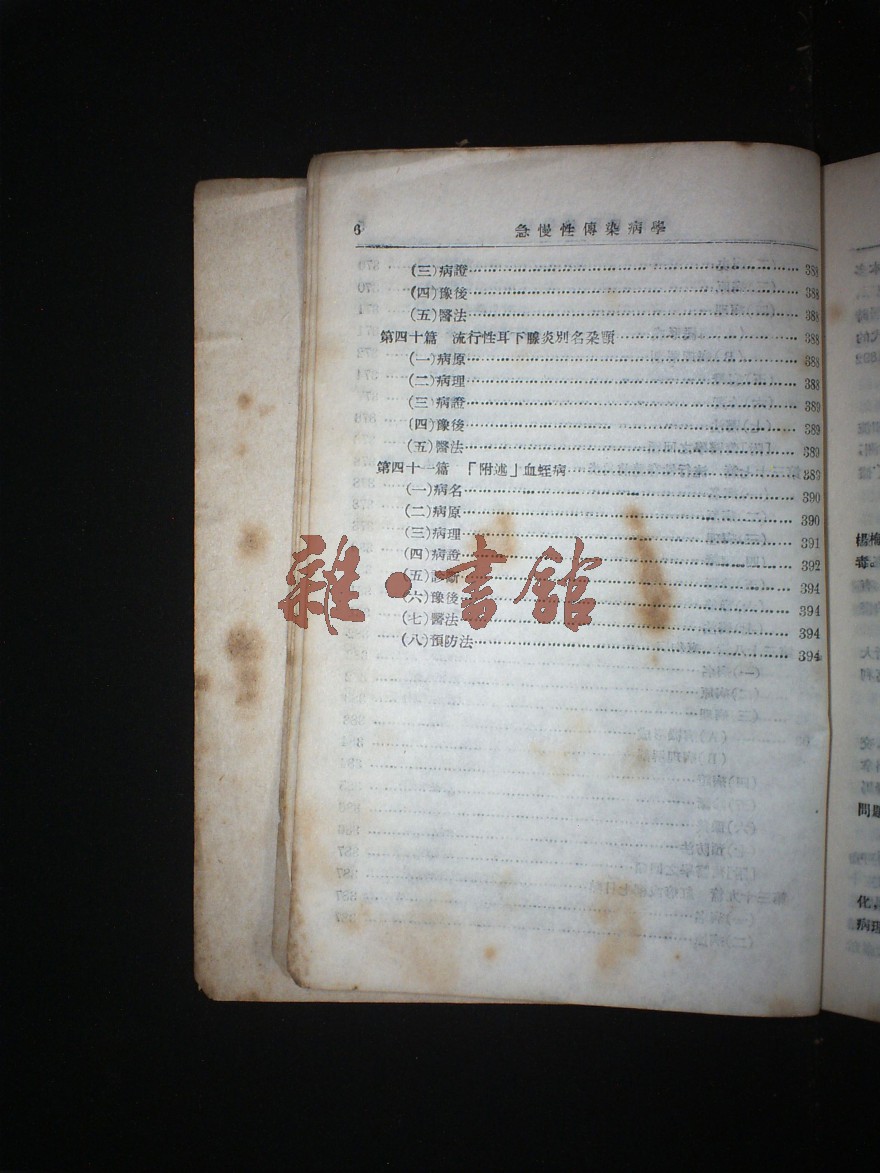 6 急慢性傳染病學
(三)病證 388
(四)豫後 388
(五)醫法 388
第四十篇 流行性耳下腺炎別名朶頤 388
(一)病原 388
(二)病理 388
(三)病證 389
(四)豫後 389
(五)醫法 389
第四十一篇 「附述」血蛭病 389
(一)病名 390
(二)病原 390
(三)病理 391
(四)病證 392
(五)診斷 394
(六)豫後 394
(七)醫法 394
(八)預防法 394
雜·書館
楊梅
問題
化,
病理